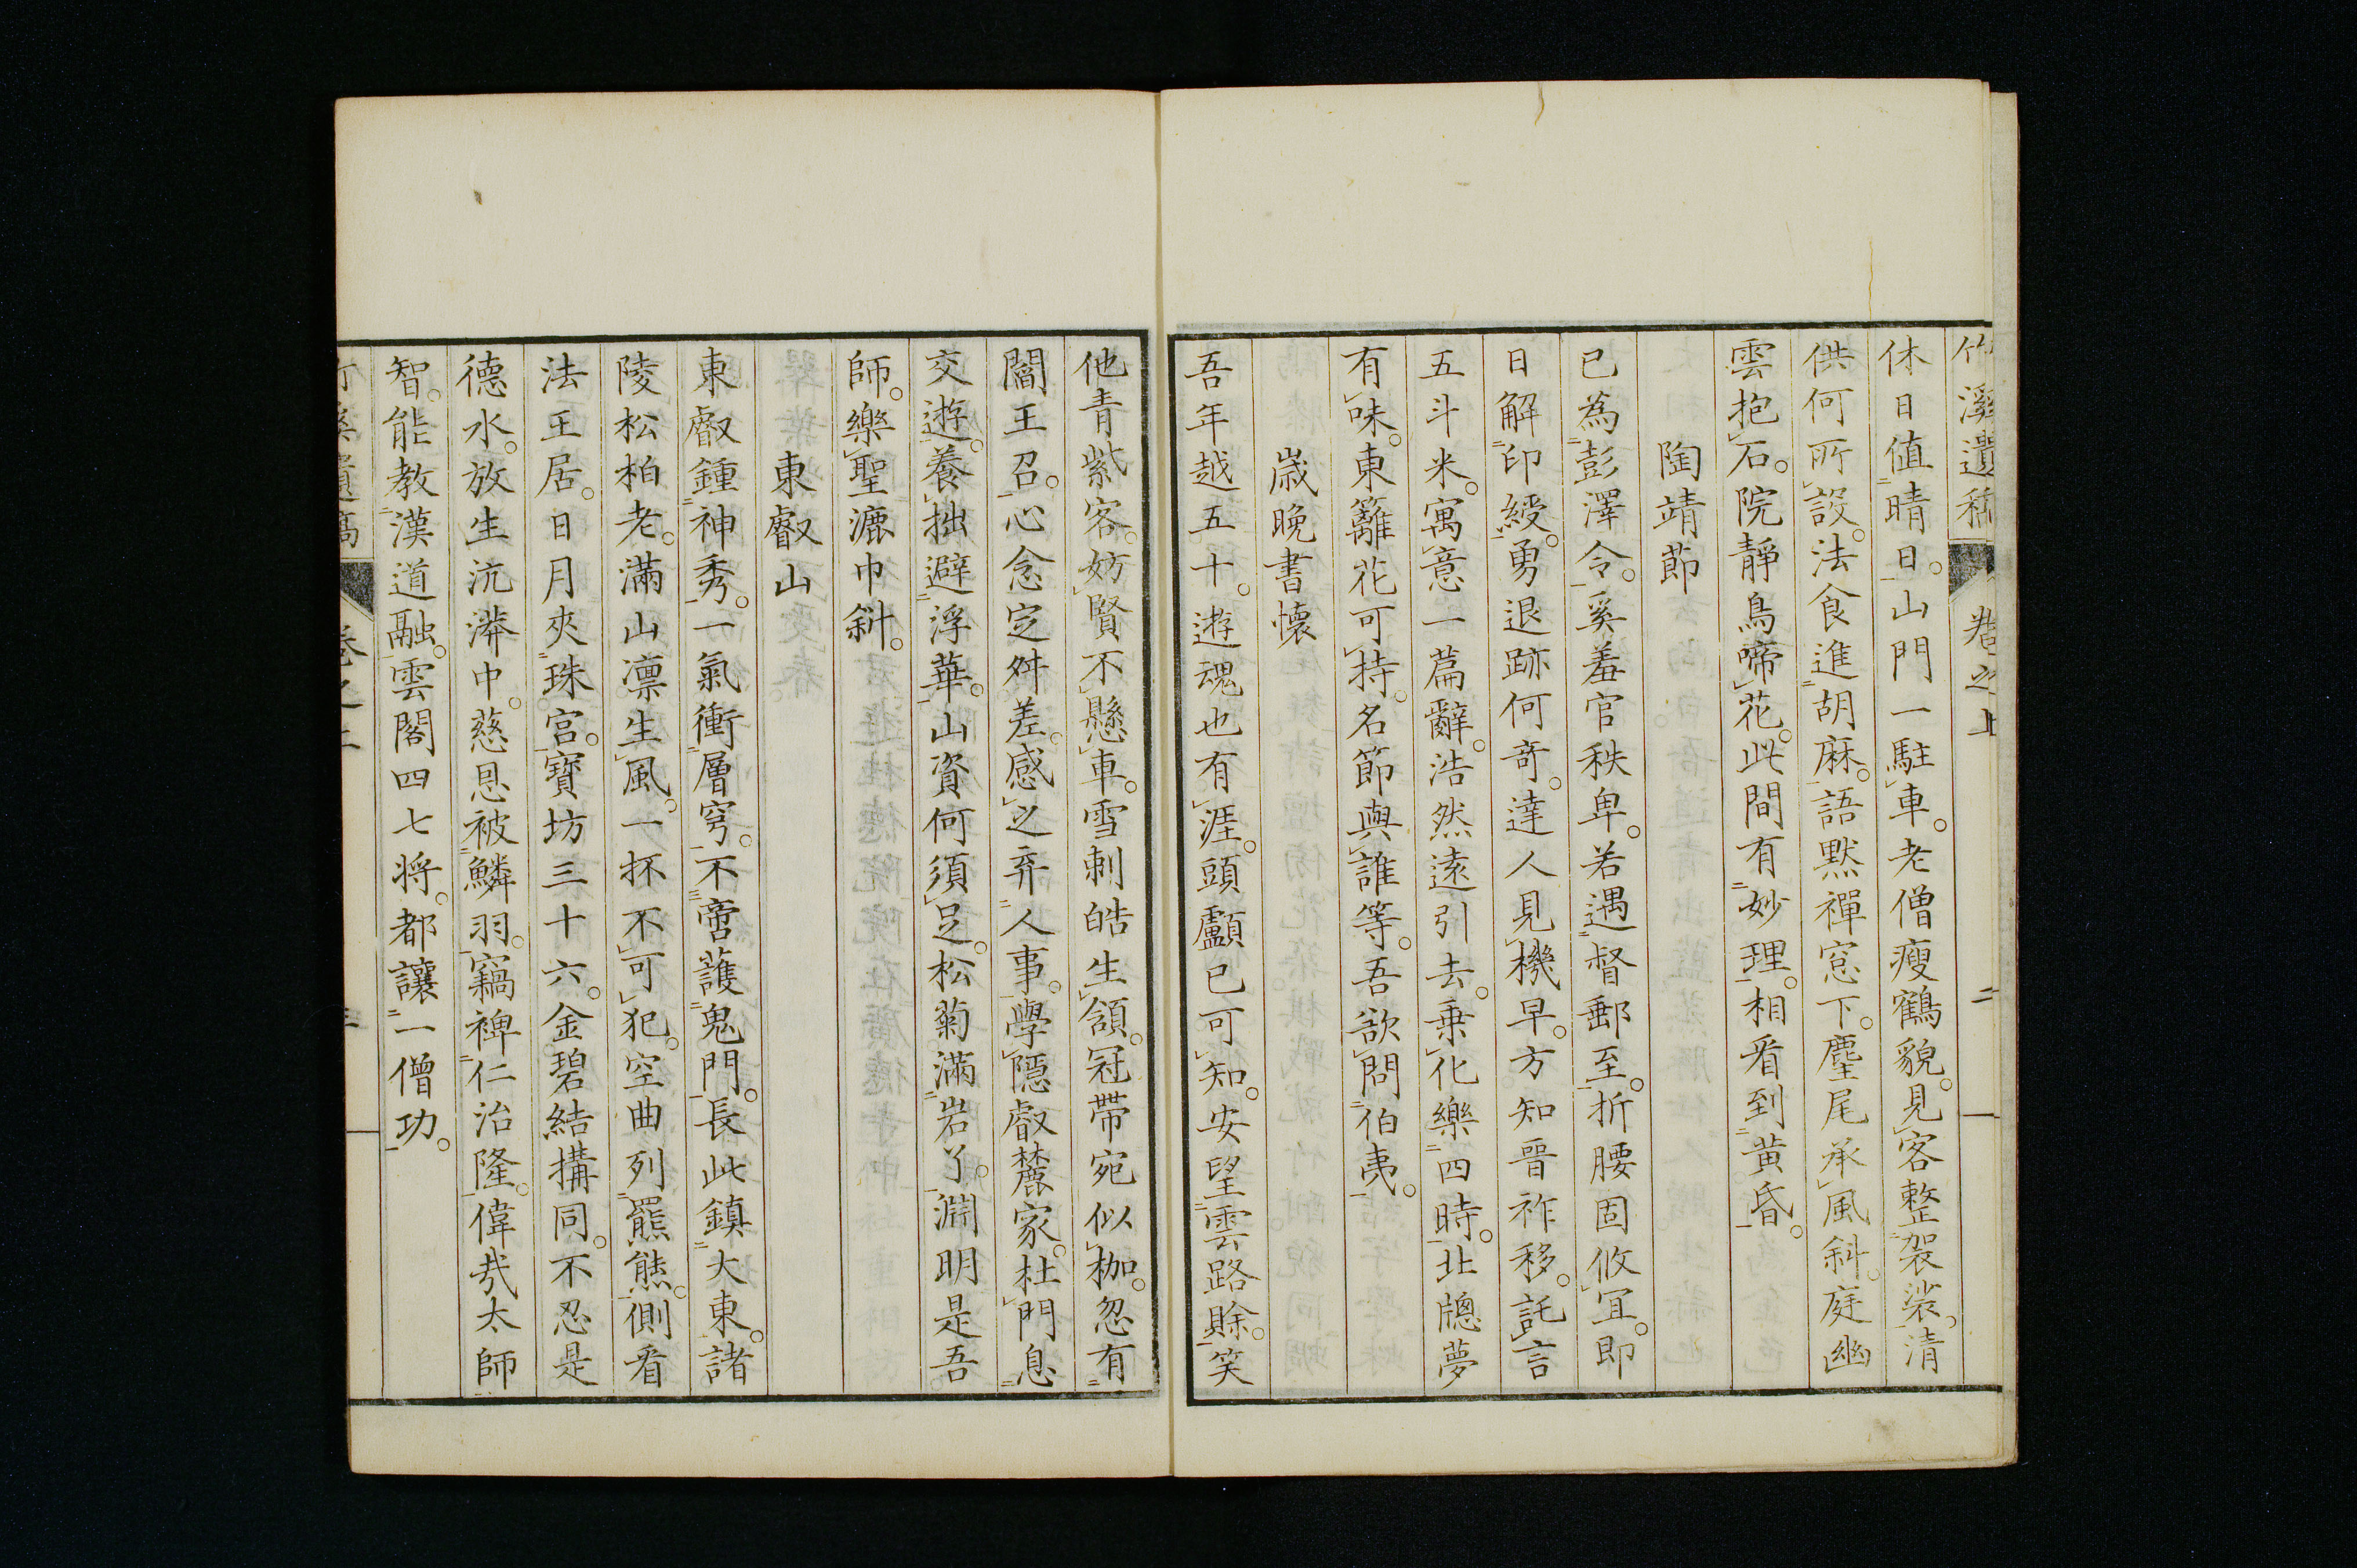 竹溪遺稿 卷之上 二
休日值晴日。山門一駐車。老僧瘦鶴貌。見客整袈裟。清
供何所設。法食進胡麻。語默禪窓下。麈尾承風斜。庭幽
雲抱石。院靜鳥啼花。此間有妙理。相看到黃昏。
陶靖節
已為彭澤令。奚羞官秩卑。若遇督郵至。折腰固攸宜。即
日解印綬。勇退跡何奇。達人見機早。方知晉祚移。託言
五斗米。寓意一篇辭。浩然遠引去。乗化樂四時。北牕夢
有味。東籬花可持。名節與誰等。吾欲問伯夷。
歲晚書懷
吾年越五十。遊魂也有涯。頭顱已可知。安望雲路賒。笑
他青紫客。妨賢不懸車。雪刺皓生頷。冠帶宛似枷。忽有
閻王召。心念定舛差。感之弃人事。學隱叡麓家。杜門息
交遊。養拙避浮華。山資何須足。松菊滿岩丫。淵明是吾
師。樂聖漉巾斜。
東叡山
東叡鍾神秀。一氣衝層穹。不啻護鬼門。長此鎮大東。諸
陵松柏老。滿山凛生風。一抔不可犯。空曲列羆熊。側看
法王居。日月夾珠宮。寶坊三十六。金碧結搆同。不忍是
德水。放生沆漭中。慈恩被鱗羽。竊裨仁治隆。偉哉太師
智。能教漢道融。雲閣四七將。都讓一僧功。